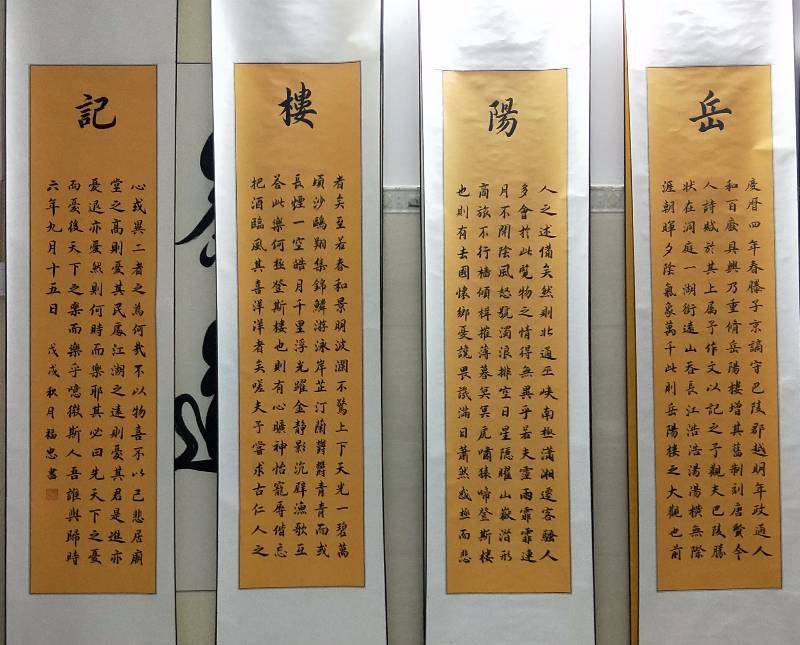 岳
慶曆四年春滕子京謫守巴陵郡越明年政通人
和百廢具興乃重脩岳陽樓增其舊制刻唐賢今
人詩賦於其上属予作文以記之予觀夫巴陵勝
狀在洞庭一湖銜遠山吞長江浩浩湯湯橫無際
涯朝暉夕陰氣象萬千此則岳陽樓之大觀也前
陽
人之述備矣然則北通巫峽南極瀟湘遷客騷人
多會於此覽物之情得無異乎若夫霪雨霏霏連
月不開陰風怒號濁浪排空日星隱曜山嶽潛形
商旅不行檣傾楫摧薄暮冥冥虎嘯猿啼登斯樓
也則有去國懷鄉憂讒畏譏滿目蕭然感極而悲
樓
者矣至若春和景明波瀾不驚上下天光一碧萬
頃沙鷗翔集錦鱗游泳岸芷汀蘭鬱鬱青青而或
長煙一空皓月千里浮光躍金靜影沉璧漁歌互
答此樂何極登斯樓也則有心曠神怡寵辱偕忘
把酒臨風其喜洋洋者矣嗟夫予嘗求古仁人之
記
心或異二者之為何哉不以物喜不以己悲居廟
堂之高則憂其民處江湖之遠則憂其君是進亦
憂退亦憂然則何時而樂耶其必曰先天下之憂
而憂後天下之樂而樂乎噫微斯人吾誰與歸時
六年九月十五日 戊戌秋月福忠書